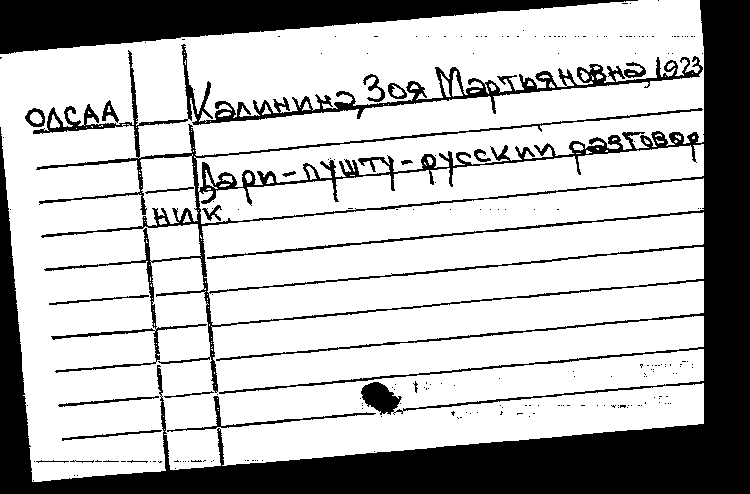 ОЛСАА
Калинина, Зоя Мартьяновна, 1923
Дари-пушту-русский разговор
ник.